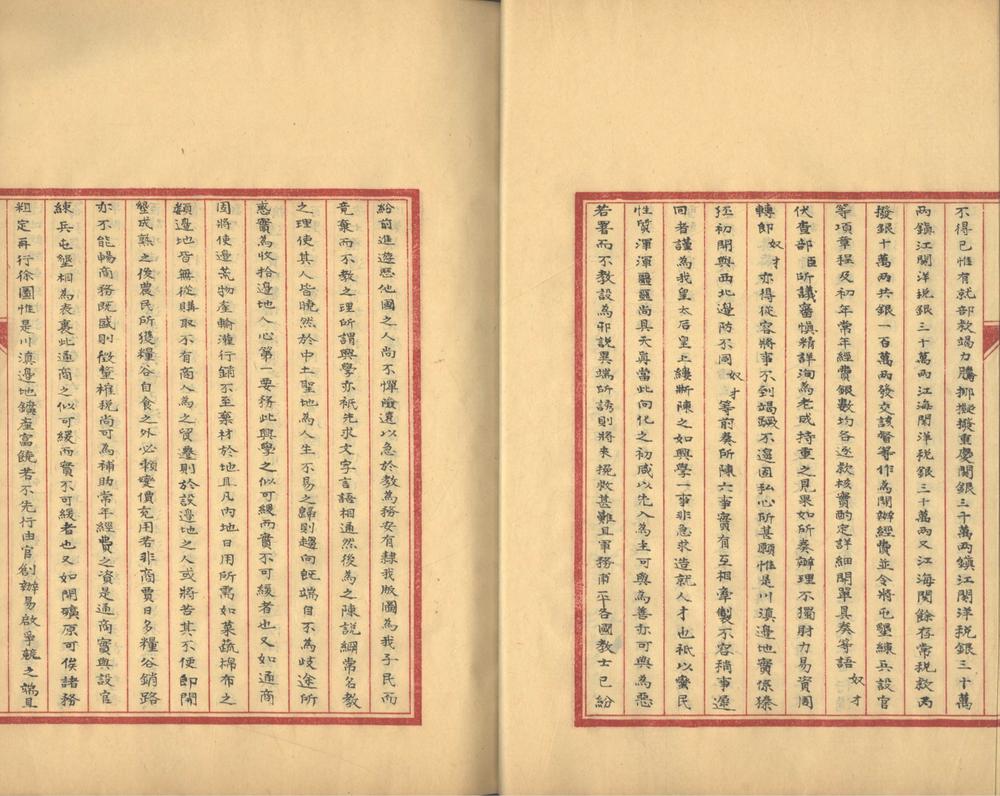 不得已惟有就部款竭力騰挪擬撥重慶關銀三十萬兩鎮江關洋稅銀三十萬
兩鎮江關洋稅銀三十萬兩江海關洋稅銀三十萬兩又江海關餘存常稅款內
撥銀十萬兩共銀一百萬兩發交該督等作為開辦經費並令將屯墾練兵設官
等項章程及初年常年經費銀數均各逐款核實酌定詳細開單具奏等語奴才
伏查部臣所議審慎精詳洵為老成持重之見果如所奏辦理不獨財力易資周
轉即奴才亦得從容將事不到竭蹶不遑固私心所甚願惟是川滇邊地實係獉
狉初開與西北邊防不同奴才等前奏所陳六事實有互相牽製不容稍事遲
回者謹為我皇太后皇上縷晰陳之如興學一事非急求造就人才也祇以蠻民
性質渾渾噩噩尚具天真當此向化之初感以先入為主可與為善亦可與為惡
若置而不教設為邪說異端所誘則將來挽救甚難且軍務甫平各國教士已紛
紛前進遊歷他國之人尚不憚險遠以急於教為務安有隸我版圖為我子民而
竟棄而不教之理所謂興學亦祇先求文字言語相通然後為之陳說綱常名教
之理使其人皆曉然於中土聖地為人生不易之歸則趨向既端自不為歧途所
惑實為收拾邊地人心第一要務此興學之似可緩而實不可緩者也又如通商
固將使邊荒物產輸灌行銷不至棄材於地且凡內地日用所需如菜蔬棉布之
類邊地皆無從購取不有商人為之貿遷則於設邊地之人或將苦其不便即開
墾成熟之後農民所獲糧谷自食之外必賴變價充用若非商賈日多糧谷銷路
亦不能暢商務既盛則酌釐榷稅尚可為補助常年經費之資是通商實與設官
練兵屯墾相為表裏此通商之似可緩而實不可緩者也又如開礦原可俟諸務
粗定再行徐圖惟是川滇邊地鑛產富饒若不先行由官創辦易啟爭競之端且